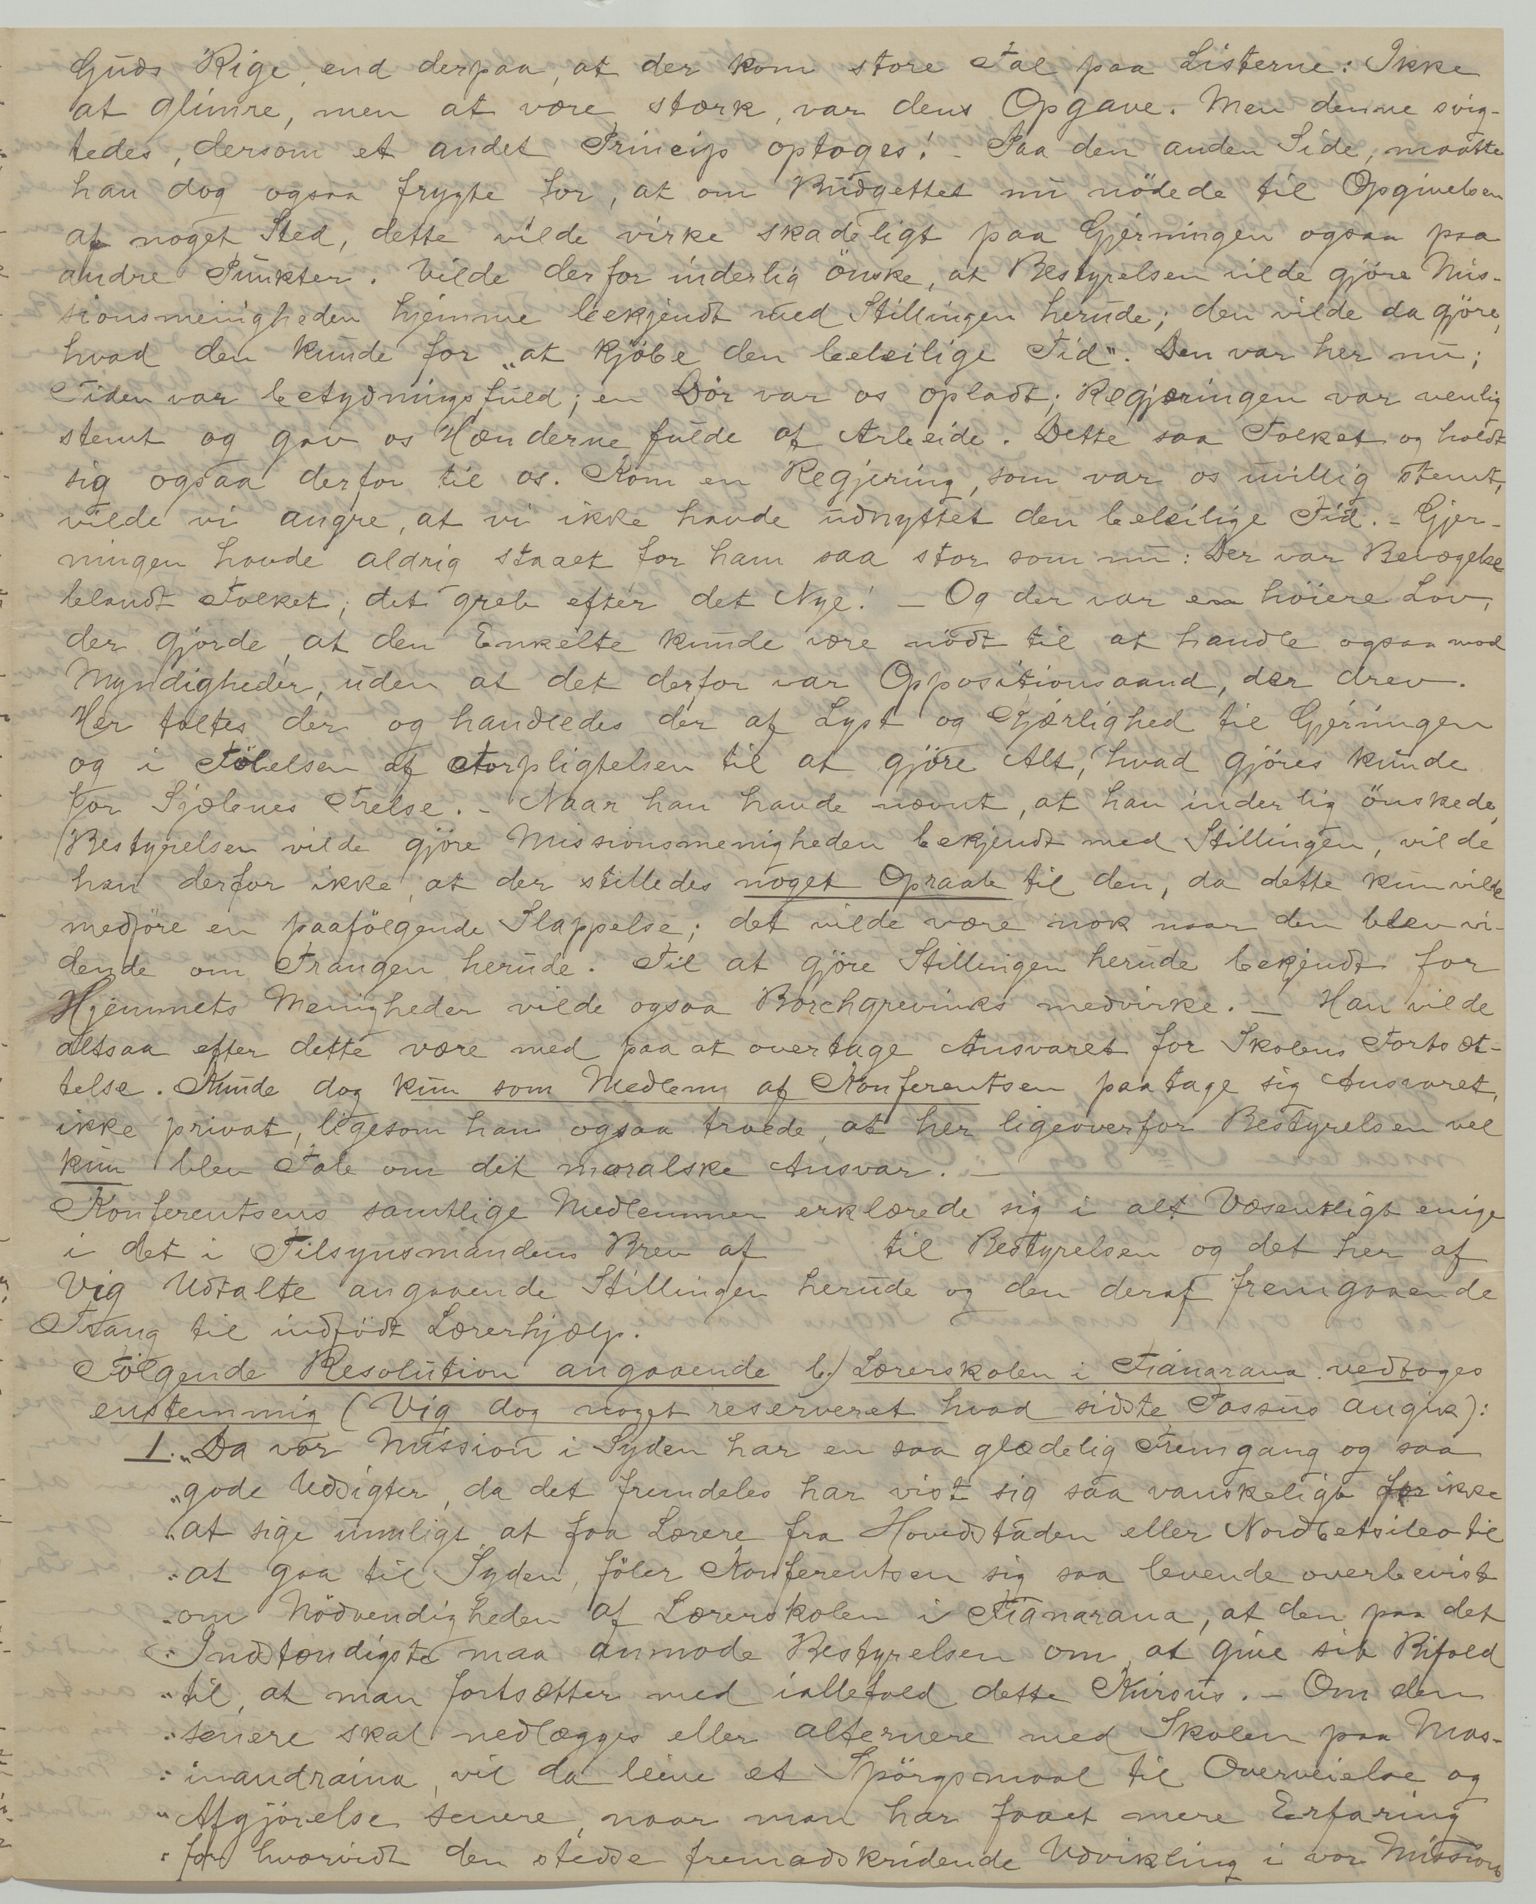 Guds Rige, end derpaa, at der kom store Tal paa Listerne: Ikke
at glimre, men at være stærk, var dens Opgave. Men denne svig-
tedes, dersom et andet Princip optoges! - Paa den anden Side, maatte
han dog ogsaa frygte for, at om Budgettet nu nödede til Opgivelsen
af noget Sted, dette vilde virke skadeligt paa Gjerningen ogsaa paa
andre Punkter. Vilde derfor inderlig önske, at Bestyrelsen vilde gjöre Mis-
sionsmenigheden hjemme bekjendt med Stillingen herude; den vilde da gjöre,
hvad den kunde for „at kjöbe den beleilige Tid“. Den var her nu;
Tiden var betydningsfuld; en Dör var os opladt; Regjæringen var venlig
stemt og gav os Hænderne fulde af Arbeide. Dette saa Folket og holdt
sig ogsaa derfor til os. Kom en Regjering, som var os uvillig stemt,
vilde vi angre, at vi ikke havde udnyttet den beleilige Tid. - Gjer-
ningen havde aldrig staaet for ham saa stor som nu: Der var Bevægelse
blandt Folket; det greb efter det Nye! - Og der var en höiere Lov,
der gjorde, at den Enkelte kunde være nödt til at handle ogsaa mod
Myndigheder, uden at det derfor var Oppositionsaand, der drev.
Her taltes der og handledes der af Lyst og Kjærlighed til Gjerningen
og i Fölelsen af Forpligtelsen til at gjöre Alt, hvad gjöres kunde
for Sjælenes Frelse. - Naar han havde nævnt, at han inderlig önskede,
Bestyrelsen vilde gjöre Missionsmenigheden bekjendt med Stillingen, vilde
han derfor ikke, at der stilledes noget Opraab til den, da dette kun vilde
medföre en paafölgende Slappelse; det vilde være nok naar den blev vi-
dende om Trangen herude. Til at gjöre Stillingen herude bekjendt for
Hjemmets Menigheder vilde ogsaa Borchgrevinks medvirke. - Han vilde
altsaa efter dette være med paa at overtage Ansvaret for Skolens Fortsæt-
telse. Kunde dog kun som Medlem af Konferentsen paatage sig Ansvaret,
ikke privat, ligesom han ogsaa troede, at her ligeoverfor Bestyrelsen vel
kun blev Tale om det moralske Ansvar. -
Konferentsens samtlige Medlemmer erklærede sig i alt Væsentligt enige
i det i Tilsynsmandens Brev af til Bestyrelsen og det her af
Vig Udtalte angaaende Stillingen herude og den deraf fremgaaende
Trang til indfödt Lærerhjælp.
Fölgende Resolution angaaende b.) Lærerskolen i Fianarana vedtoges
enstemmig (Vig dog noget reserveret hvad sidste Passus angik):
1. „Da vor Mission i Syden har en saa glædelig Fremgang og saa
„gode Udsigter, da det fremdeles har vist sig saa vanskeligt for ikke
„at sige umuligt at faa Lærere fra Hovedstaden eller Nordbetsileo til
„at gaa til Syden, föler Konferentsen sig saa levende overbevist
„om Nödvendigheden af Lærerskolen i Fianarana, at den paa det
„Indstændigste maa anmode Bestyrelsen om at give sit Bifald
„til, at man fortsætter med iallefald dette Kursus. - Om den
„senere skal nedlægges eller alternere med Skolen paa Mas-
„inandraina, vil da blive et Spörgsmaal til Overveielse og
„Afgjörelse senere, naar man har faaet mere Erfaring
„for hvorvidt den stedse fremadskridende Udvikling i vor Missions